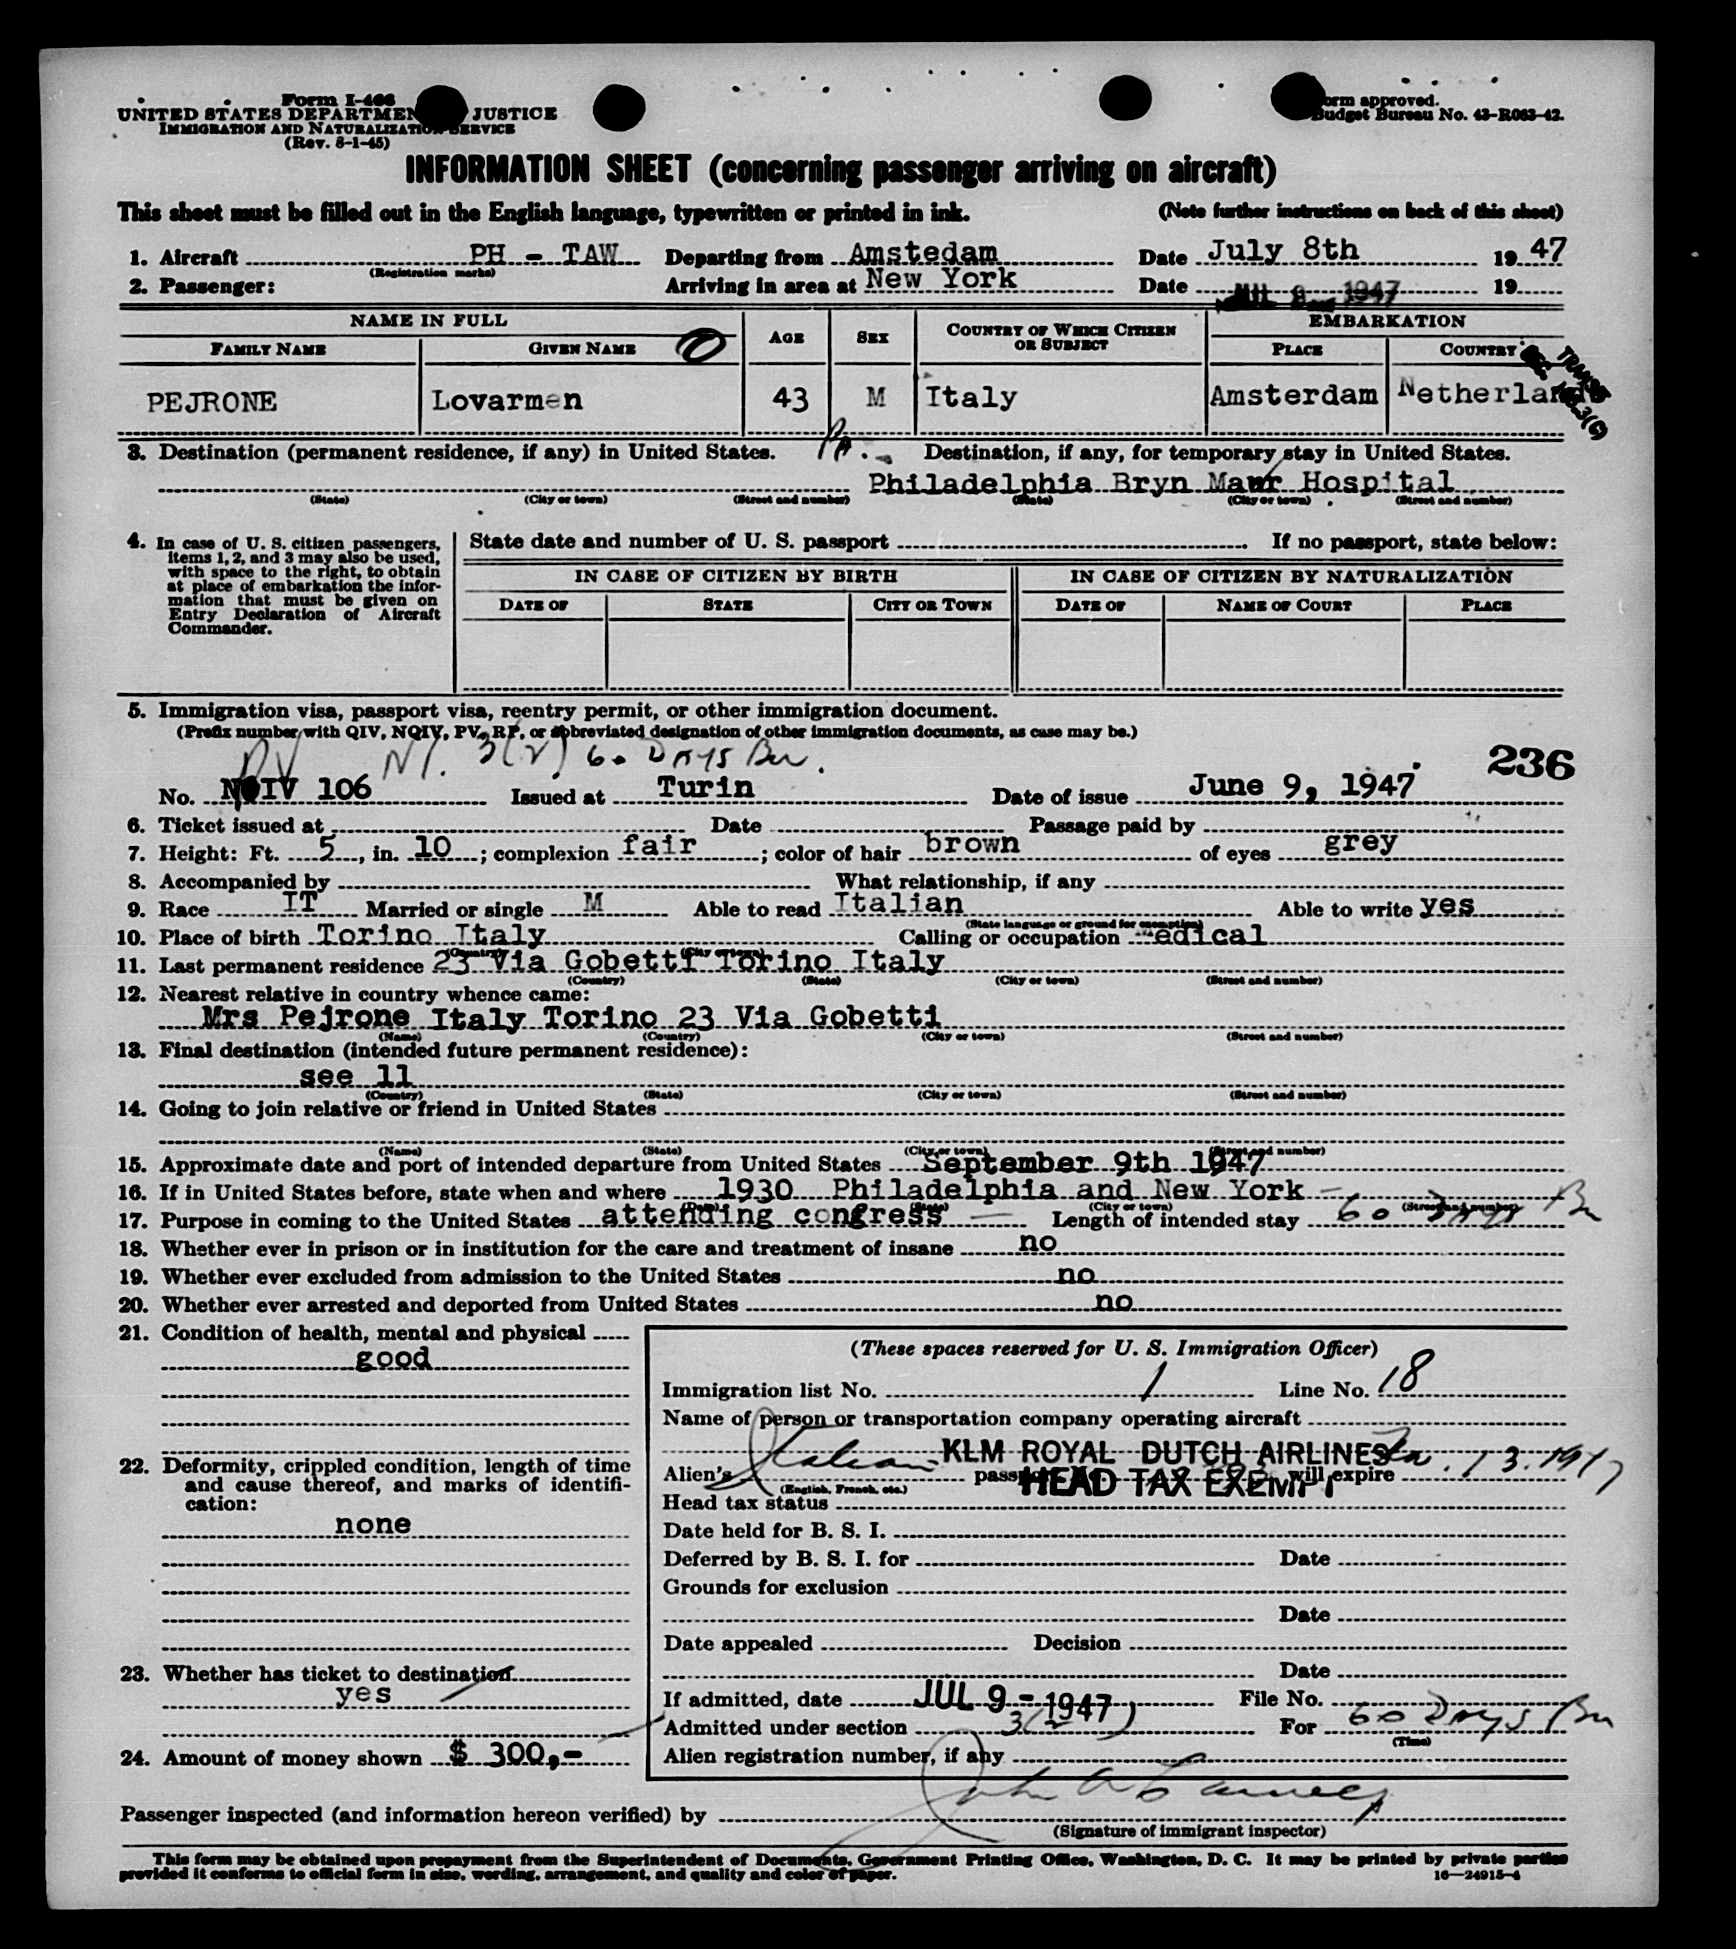 Form I-466
UNITED STATES DEPARTMENT JUSTICE
IMMIGRATION AND NATURALIZATION SERVICE
(Rev. 8-1-45)
Form approved.
Budget Bureau No. 43-R063-42.
INFORMATION SHEET (concerning passenger arriving on aircraft)
This sheet must be filled out in the English language, typewritten or printed in ink. (Note further instructions on back of this sheet)
1. Aircraft PH - TAW Departing from Amstedam Date July 8th 19 47
(Registration marks)
2. Passenger: Arriving in area at New York Date 1947 19
NAME IN FULL AGE SEX COUNTRY OF WHICH CITIZEN OR SUBJECT EMBARKATION
FAMILY NAME GIVEN NAME PLACE COUNTRY
PEJRONE Lovarmen 43 M Italy Amsterdam Netherlands
3. Destination (permanent residence, if any) in United States. Pa. Destination, if any, for temporary stay in United States.
Philadelphia Bryn Mawr Hospital
(State) (City or town) (Street and number) (State) (City or town) (Street and number)
4. In case of U. S. citizen passengers, items 1, 2, and 3 may also be used, with space to the right, to obtain at place of embarkation the information that must be given on Entry Declaration of Aircraft Commander.
State date and number of U. S. passport . If no passport, state below:
IN CASE OF CITIZEN BY BIRTH IN CASE OF CITIZEN BY NATURALIZATION
DATE OF STATE CITY OR TOWN DATE OF NAME OF COURT PLACE
5. Immigration visa, passport visa, reentry permit, or other immigration document.
(Prefix number with QIV, NQIV, PV, RP, or abbreviated designation of other immigration documents, as case may be.)
PV 3(2) 60 DAYS
236
No. NQIV 106 Issued at Turin Date of issue June 9, 1947
6. Ticket issued at Date Passage paid by
7. Height: Ft. 5, in. 10; complexion fair; color of hair brown of eyes grey
8. Accompanied by What relationship, if any
9. Race IT Married or single M Able to read Italian Able to write yes
(State language or ground for exemption)
10. Place of birth Torino Italy Calling or occupation Medical
(Country) (City or town)
11. Last permanent residence 23 Via Gobetti Torino Italy
(Country) (State) (City or town) (Street and number)
12. Nearest relative in country whence came:
Mrs Pejrone Italy Torino 23 Via Gobetti
(Name) (Country) (City or town) (Street and number)
13. Final destination (intended future permanent residence):
see 11
(Country) (State) (City or town) (Street and number)
14. Going to join relative or friend in United States
(Name) (State) (City or town) (Street and number)
15. Approximate date and port of intended departure from United States September 9th 1947
16. If in United States before, state when and where 1930 Philadelphia and New York
(Date) (State) (City or town) (Street and number)
17. Purpose in coming to the United States attending congress Length of intended stay 60 Days
18. Whether ever in prison or in institution for the care and treatment of insane no
19. Whether ever excluded from admission to the United States no
20. Whether ever arrested and deported from United States no
21. Condition of health, mental and physical
good
22. Deformity, crippled condition, length of time and cause thereof, and marks of identification:
none
23. Whether has ticket to destination
yes
24. Amount of money shown $ 300,-
(These spaces reserved for U. S. Immigration Officer)
Immigration list No. 1 Line No. 18
Name of person or transportation company operating aircraft
KLM ROYAL DUTCH AIRLINES
Alien's Italian passport will expire
(English, French, etc.)
HEAD TAX EXEMPT
Head tax status
Date held for B. S. I.
Deferred by B. S. I. for Date
Grounds for exclusion
Date
Date appealed Decision
Date
If admitted, date JUL 9 - 1947 File No.
Admitted under section 3(2) For 60 Days
(Time)
Alien registration number, if any
Passenger inspected (and information hereon verified) by
(Signature of immigrant inspector)
This form may be obtained upon prepayment from the Superintendent of Documents, Government Printing Office, Washington, D. C. It may be printed by private parties
provided it conforms to official form in size, wording, arrangement, and quality and color of paper.
16—24915-4